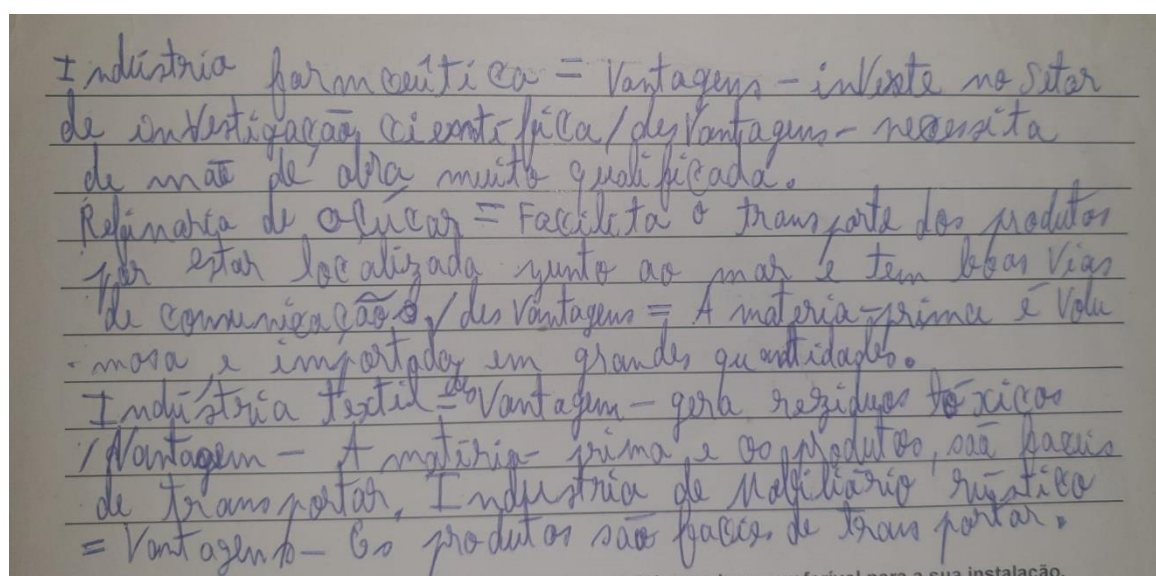 Indústria farmceûtica = Vantagens - investe no setor
de investigação científica / desvantagens - necessita
de mão de obra muito qualificada.
Refinaria de açúcar = Faccilita o transporte dos produtos
por estar localizada junto ao mar e tem boas vias
de comunicação / desvantagens = A materia-prima é volu
-mosa e importada em grandes quantidades.
Indústria textil = desvantagem - gera reziduos tóxicos
/ Vantagem - A matéria-prima e os produtos são faceis
de transportar. Indústria de Mobiliário rústico
= Vantagens - Os produtos são facies de transportar.
para a sua instalação.